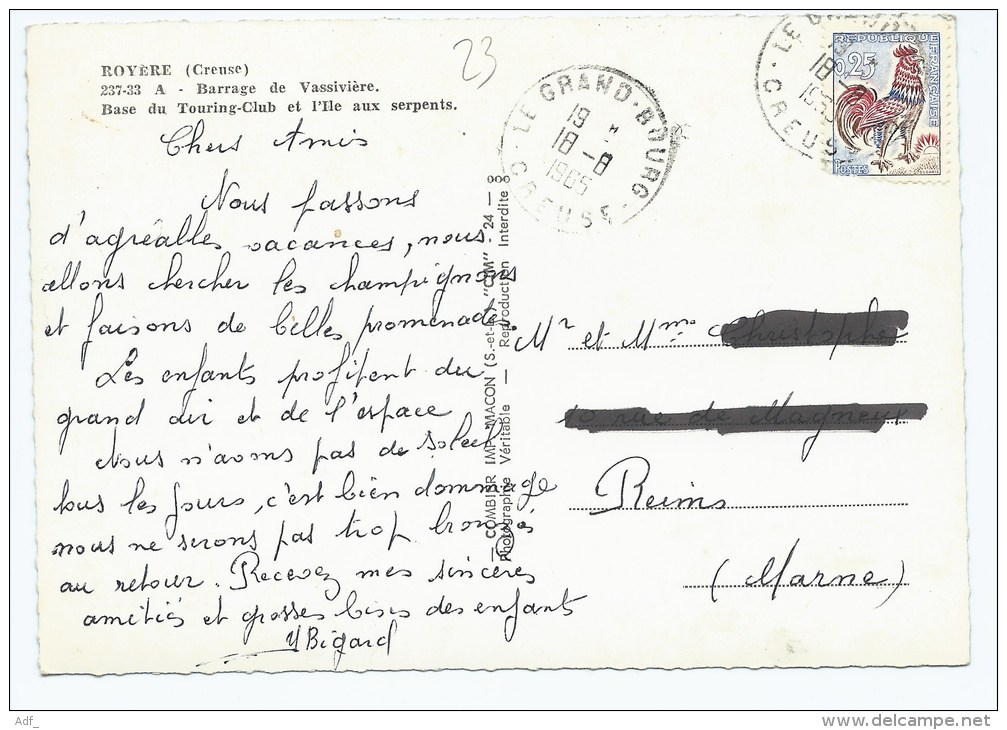 ROYÈRE (Creuse)
237-33 A - Barrage de Vassivière.
Base du Touring-Club et l'Ile aux serpents.
23
LE GRAND-BOURG
19 H
18 -8
1965
CREUSE
RÉPUBLIQUE FRANÇAISE
0,25
POSTES
Chers Amis
Nous passons
d'agréables vacances, nous
allons chercher les champignons
et faisons de belles promenades.
Les enfants profitent du
grand air et de l'espace
Nous n'avons pas de soleil
tous les jours, c'est bien dommage
nous ne serons pas trop bronzés
au retour. Recevez mes sincères
amitiés et grosses bises des enfants
Bigard
— COMBIER IMP. MACON (S.-et-L.) "CIM" - 24 —
Photographie Véritable — Reproduction Interdite
Mr et Mme
Reims
(Marne)
Adf_
www.delcampe.net